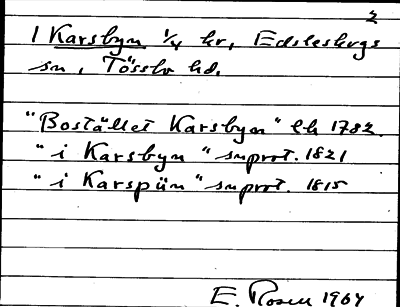 2
1 Karsbyn 1/4 hr, Edsleskogs
sn, Tössbo hd.
"Bostället Karsbyn" lh 1782.
"i Karsbyn" snprot. 1821
"i Karspün" snprot. 1815
E. Rosell 1964